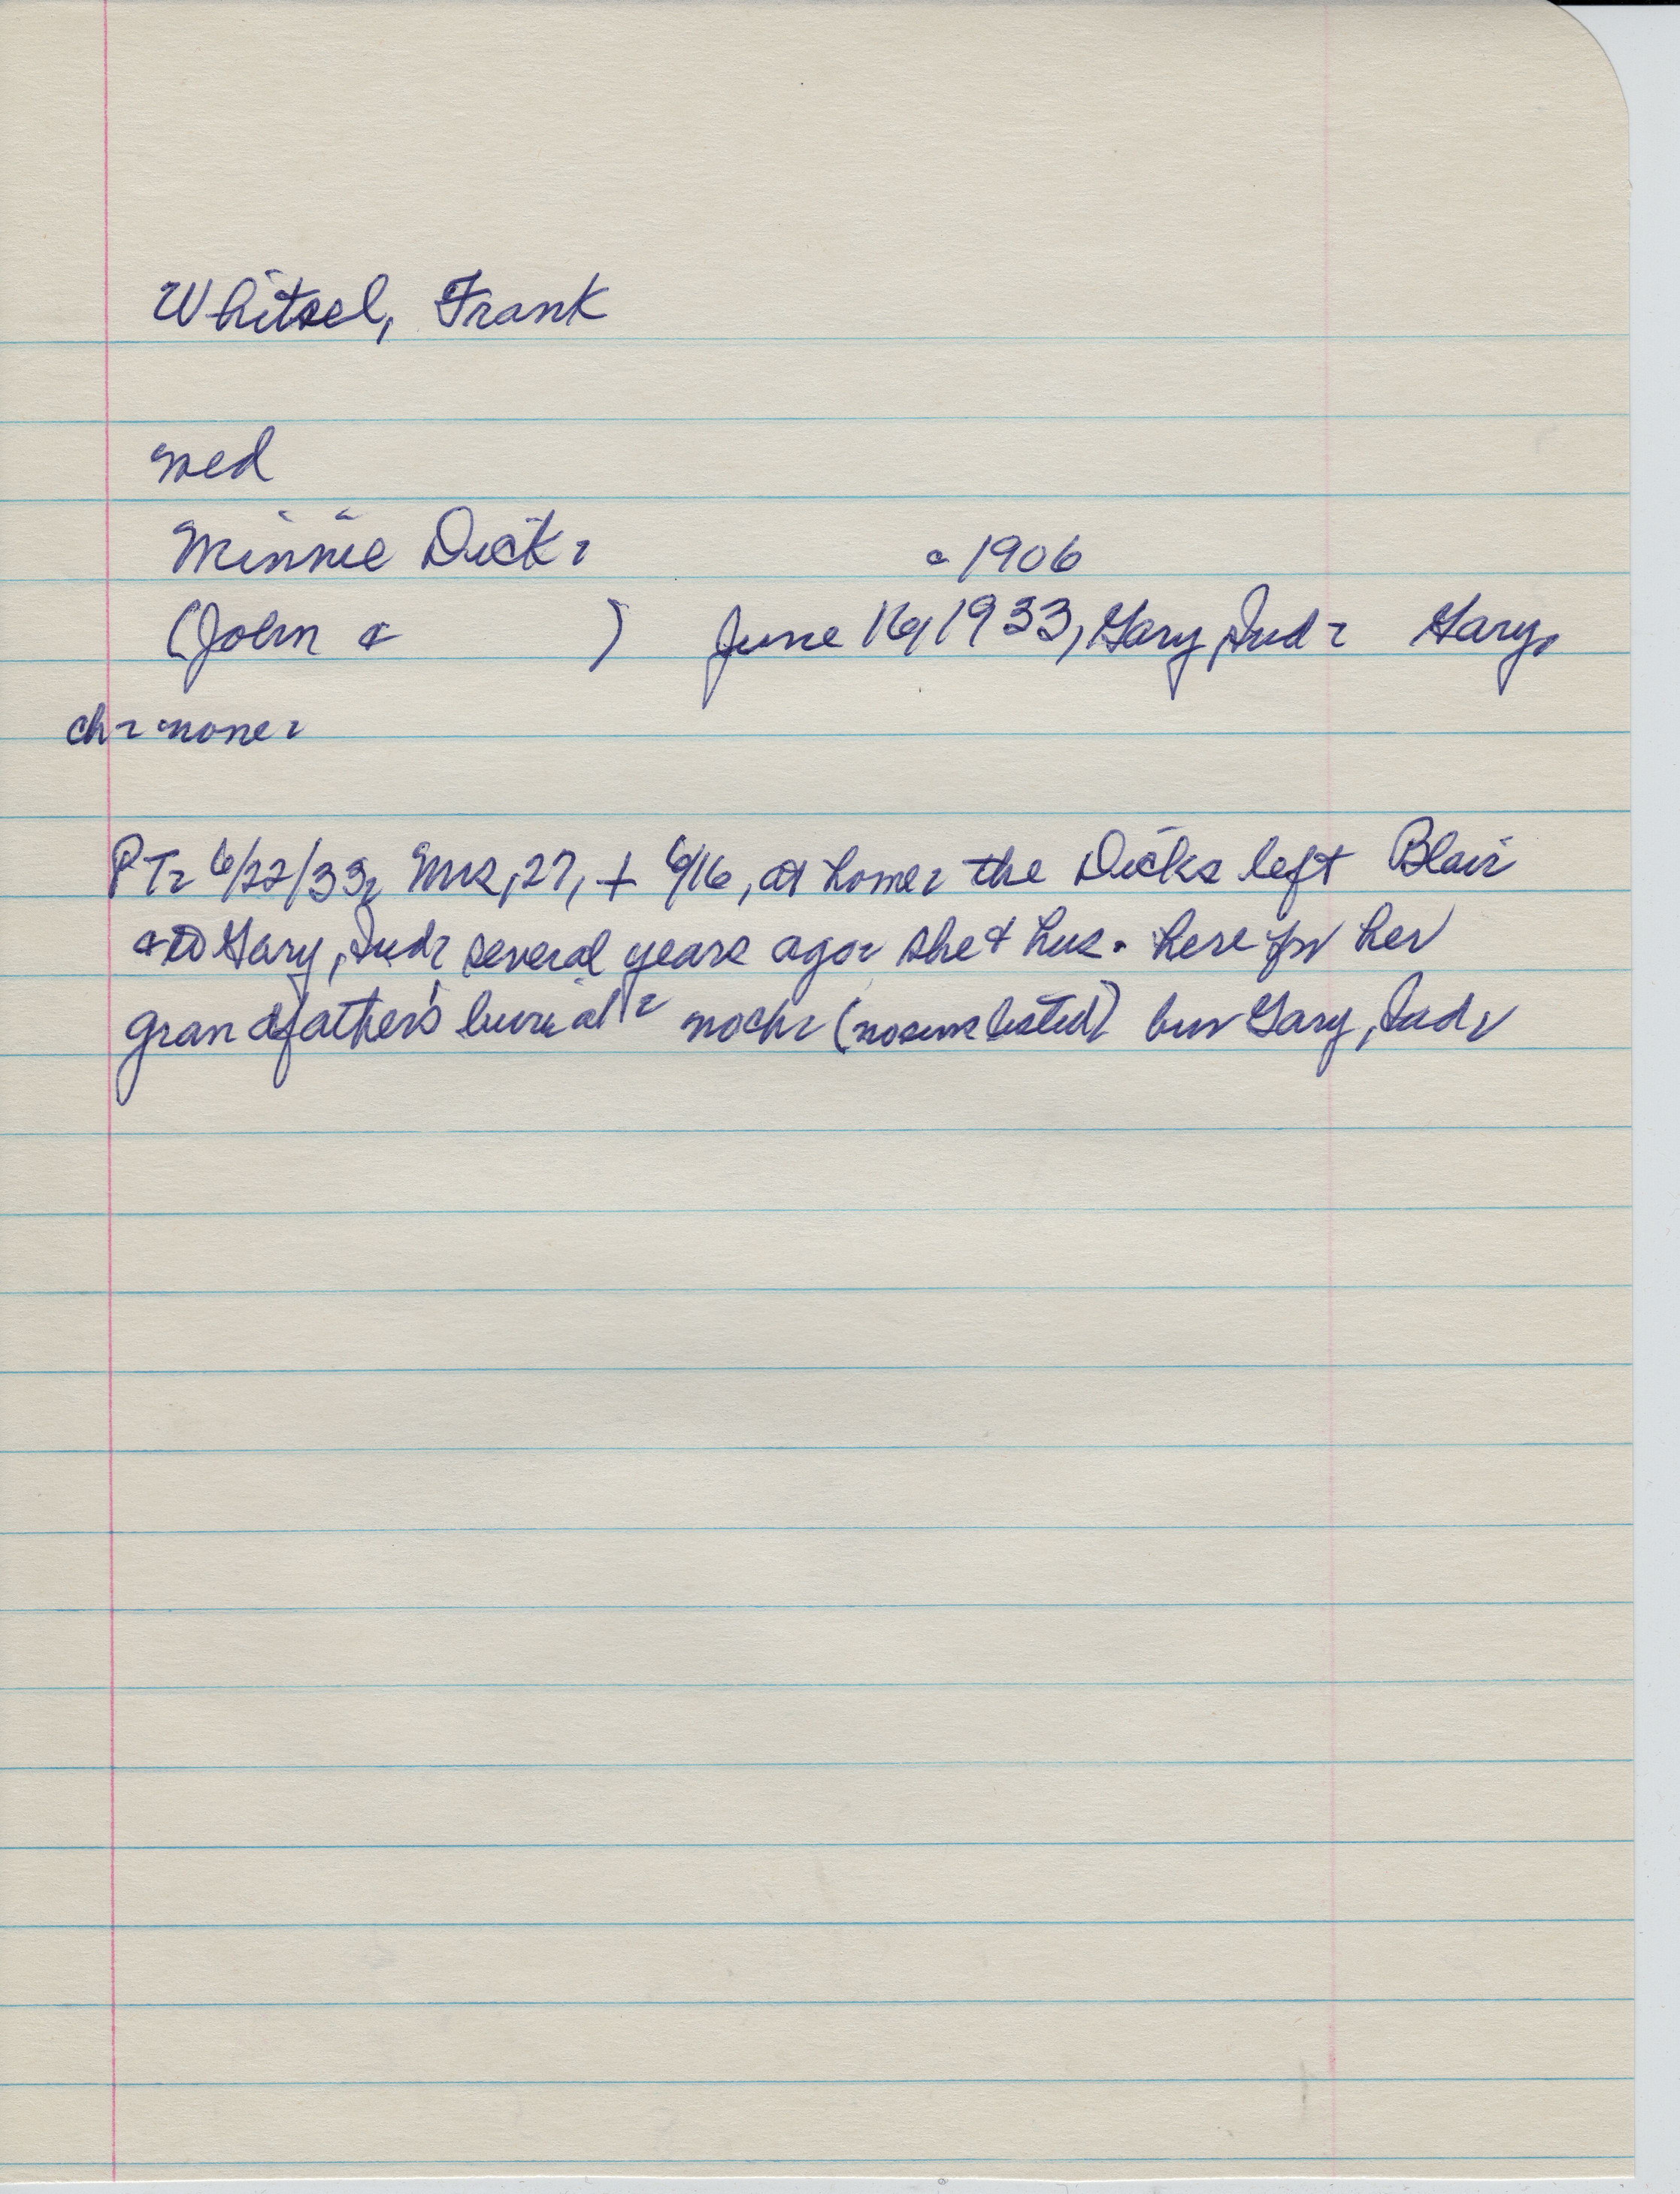 Whitsel, Frank
med
Minnie Dick.
c 1906
(John & ) June 16, 1933, Gary, Ind. Gary,
ch. none.
PT. 6/22/33, Mrs, 27, + 6/16, at home. the Dicks left Blair
& to Gary, Ind. several years ago. she & hus. here for her
grandfather's burial. no ch. (no sur. listed) bur Gary, Ind.